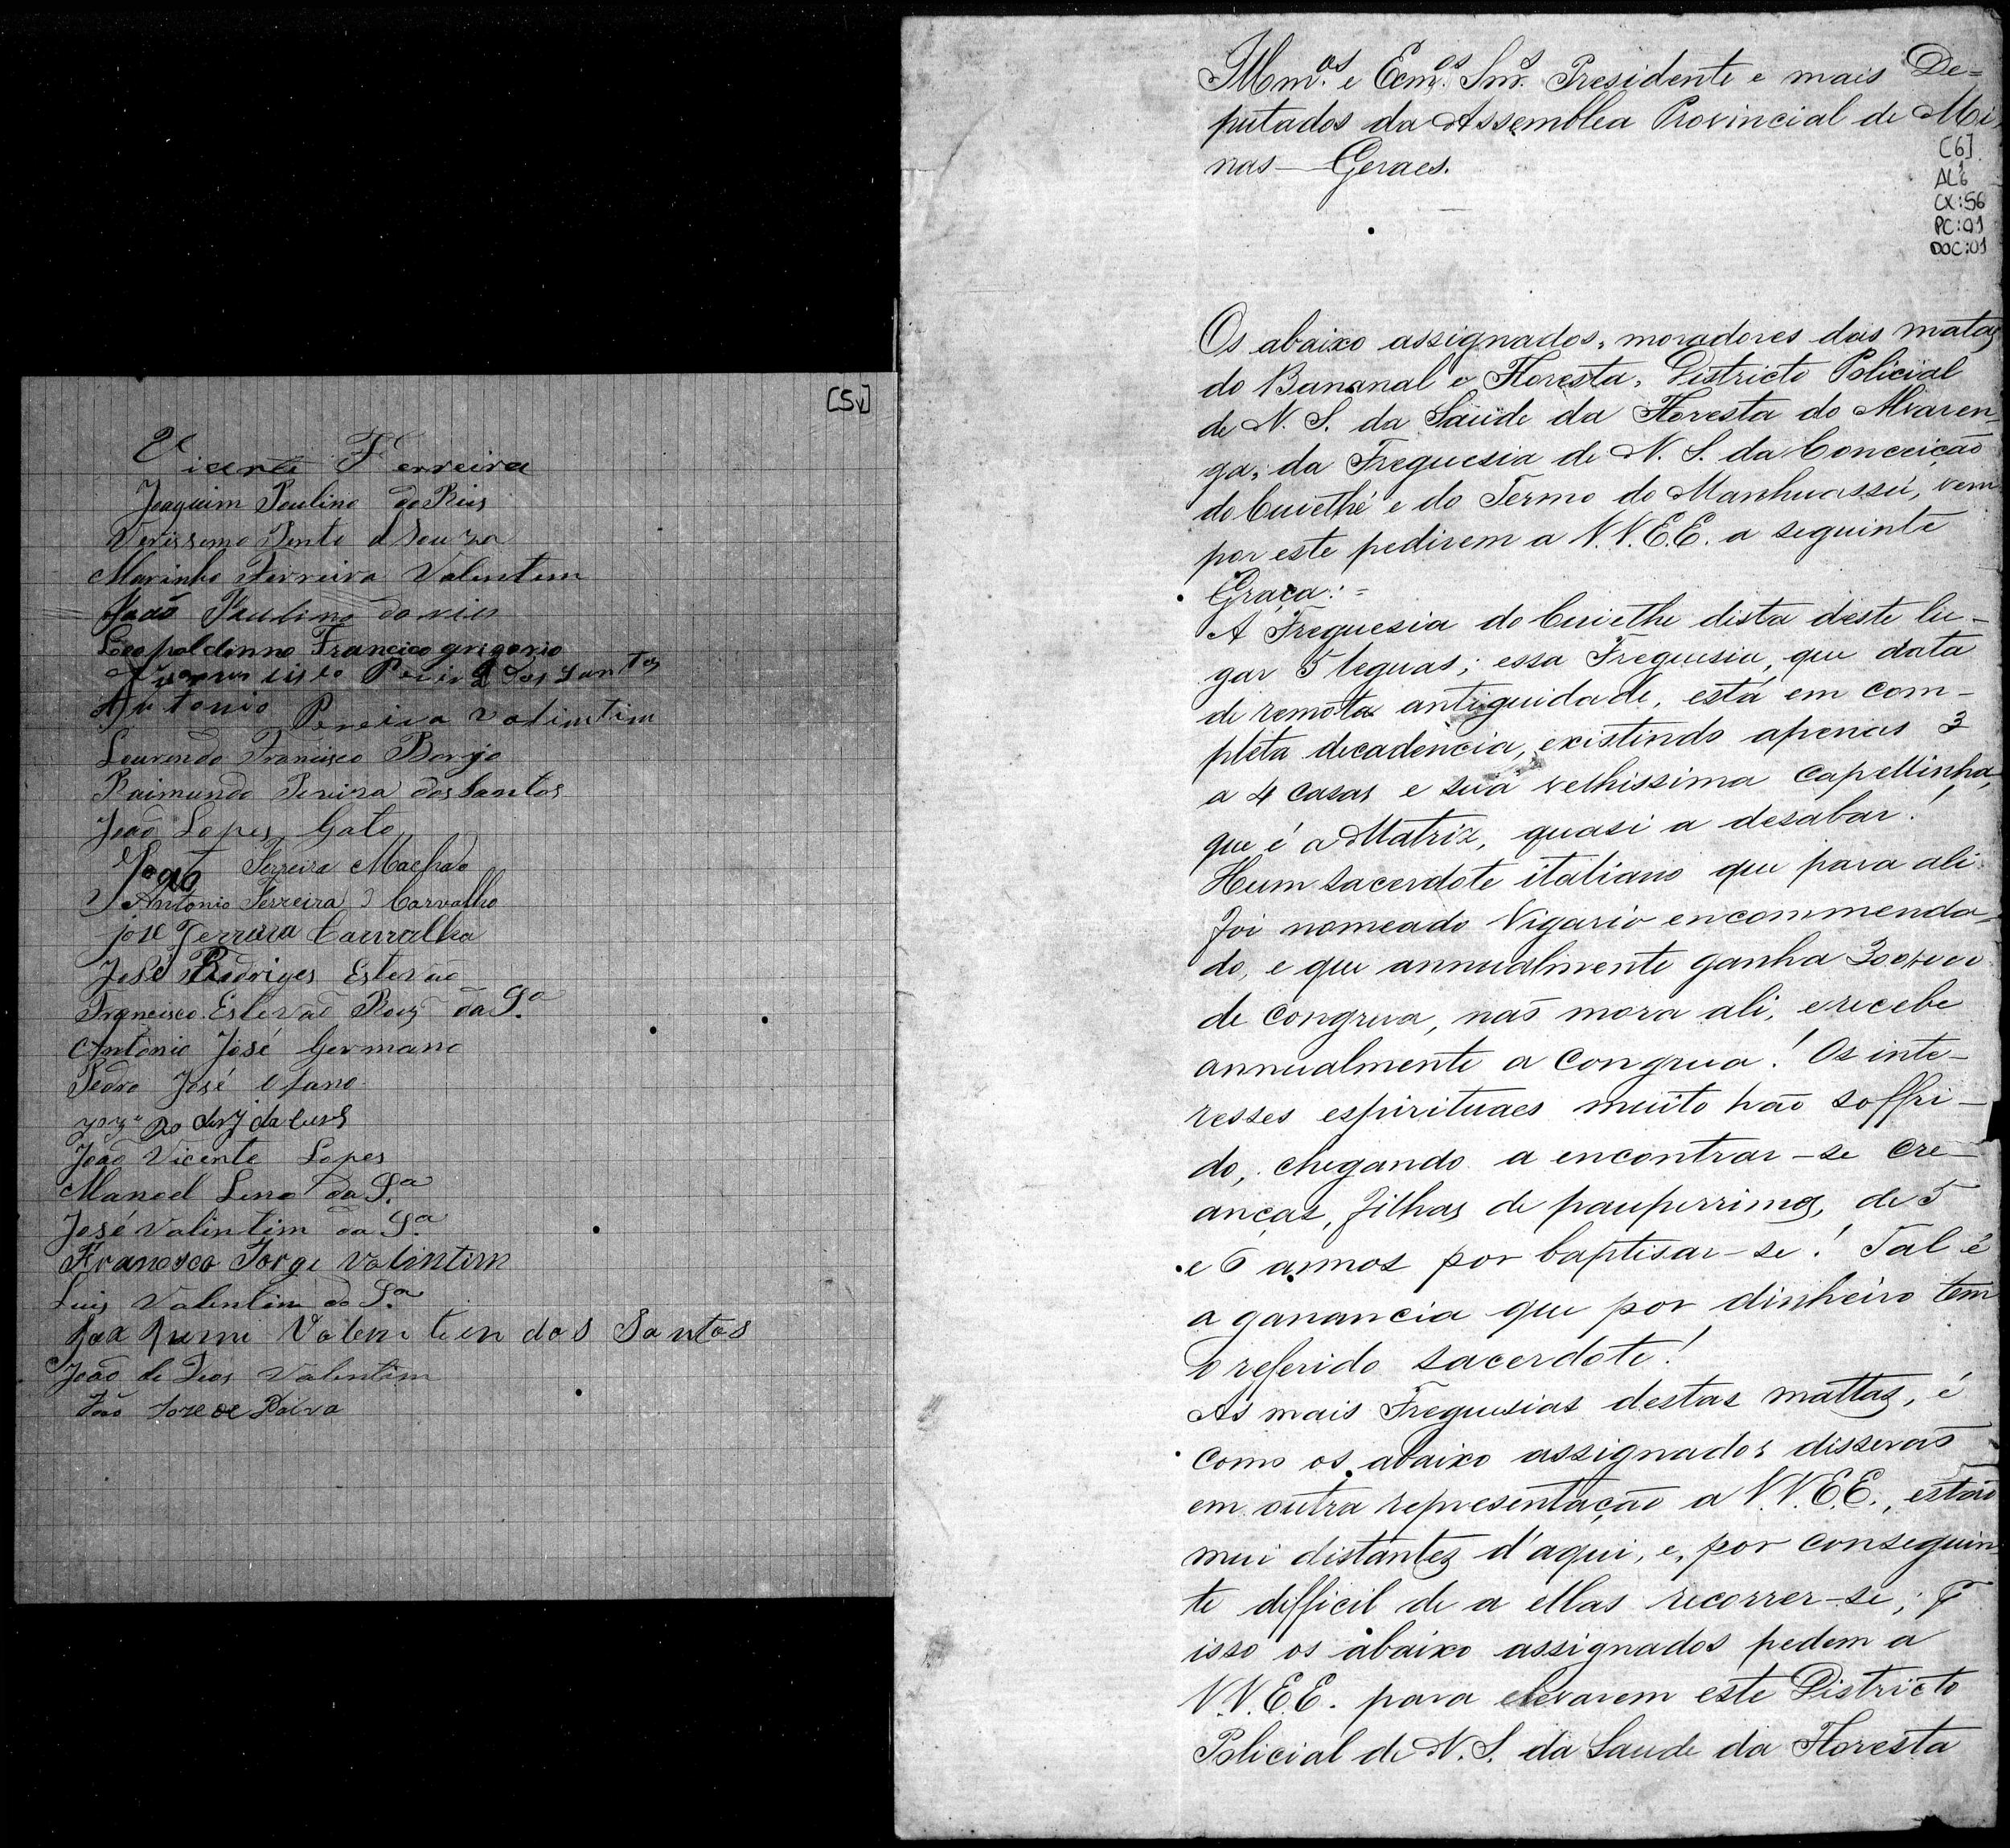 [5v]
Vicente Ferreira
Joaquim Paulino do Reis
Verissimo Pinto d Souza
Marinho Ferreira Valentim
João Paulino do reis
Leopoldinno Francico grigorio
Pereira dos Santos
Antonio Pereira Valintim
Lourendo Francisco Borjo
Raimundo Pereira dos Santos
João Lopes Gato
João Ferreira Machado
Antonio Ferreira d Carvalho
jose Ferreira Carvalho
José Rodriges Estevão
Francisco Estevão Roiz da Sª
Antonio José Germano
Pedro José
da curs
João Vicente Lopes
Manoel Lino da Sª
José Valintim da Sª
Francisco Jorge Valintim
Luis Valentim da Sª
Joaquim Valentim dos Santos
João de Deos Valentim
João Jose de Paiva
Illmos. e Exmos. Snrs. Presidente e mais De=
putados da Assemblea Provincial de Mi
nas—Geraes.
[6]
AL6
CX:56
PC:01
DOC:01
Os abaixo assignados, moradores das matas
do Bananal e Floresta, Districto Policial
de N. S. da Saüde da Floresta do Alvaren_
ga, da Freguesia de N. S. da Conceição
do Cuiethé e do Termo do Manhuassú, vem
por este pedirem a V.V.E.E. a seguinte
Graça:=
A Freguesia do Cuiethe dista deste lu-
gar 5 leguas; essa Freguesia, que data
de remota antiguidade, está em com-
pleta decadencia, existindo apenas 3
a 4 casas e sua velhissima Capellinha,
que é a Matriz, quasi a desabar!
Hum sacerdote italiano que para ali
foi nomeado Vigario encommenda_
do, e que annualmente ganha 300$000
de congrua, não mora ali, e recebe
annualmente a congrua! Os inte-
resses espirituaes muito hão soffri-
do, chegando a encontrar-se cre-
anças, filhas de pauperrimos, de 5
e 6 annos por baptisar-se! Tal é
a ganancia que por dinheiro tem
o referido sacerdote!
As mais Freguesias destas mattas, é
como os abaixo assignados disserão
em outra representação a V.V.E.E., estão
mui distantes d'aqui, e, por conseguin_
te difficil de a ellas recorrer-se; P
isso os abaixo assignados pedem a
V.V.E.E. para elevarem este Districto
Policial de N. S. da Saude da Floresta